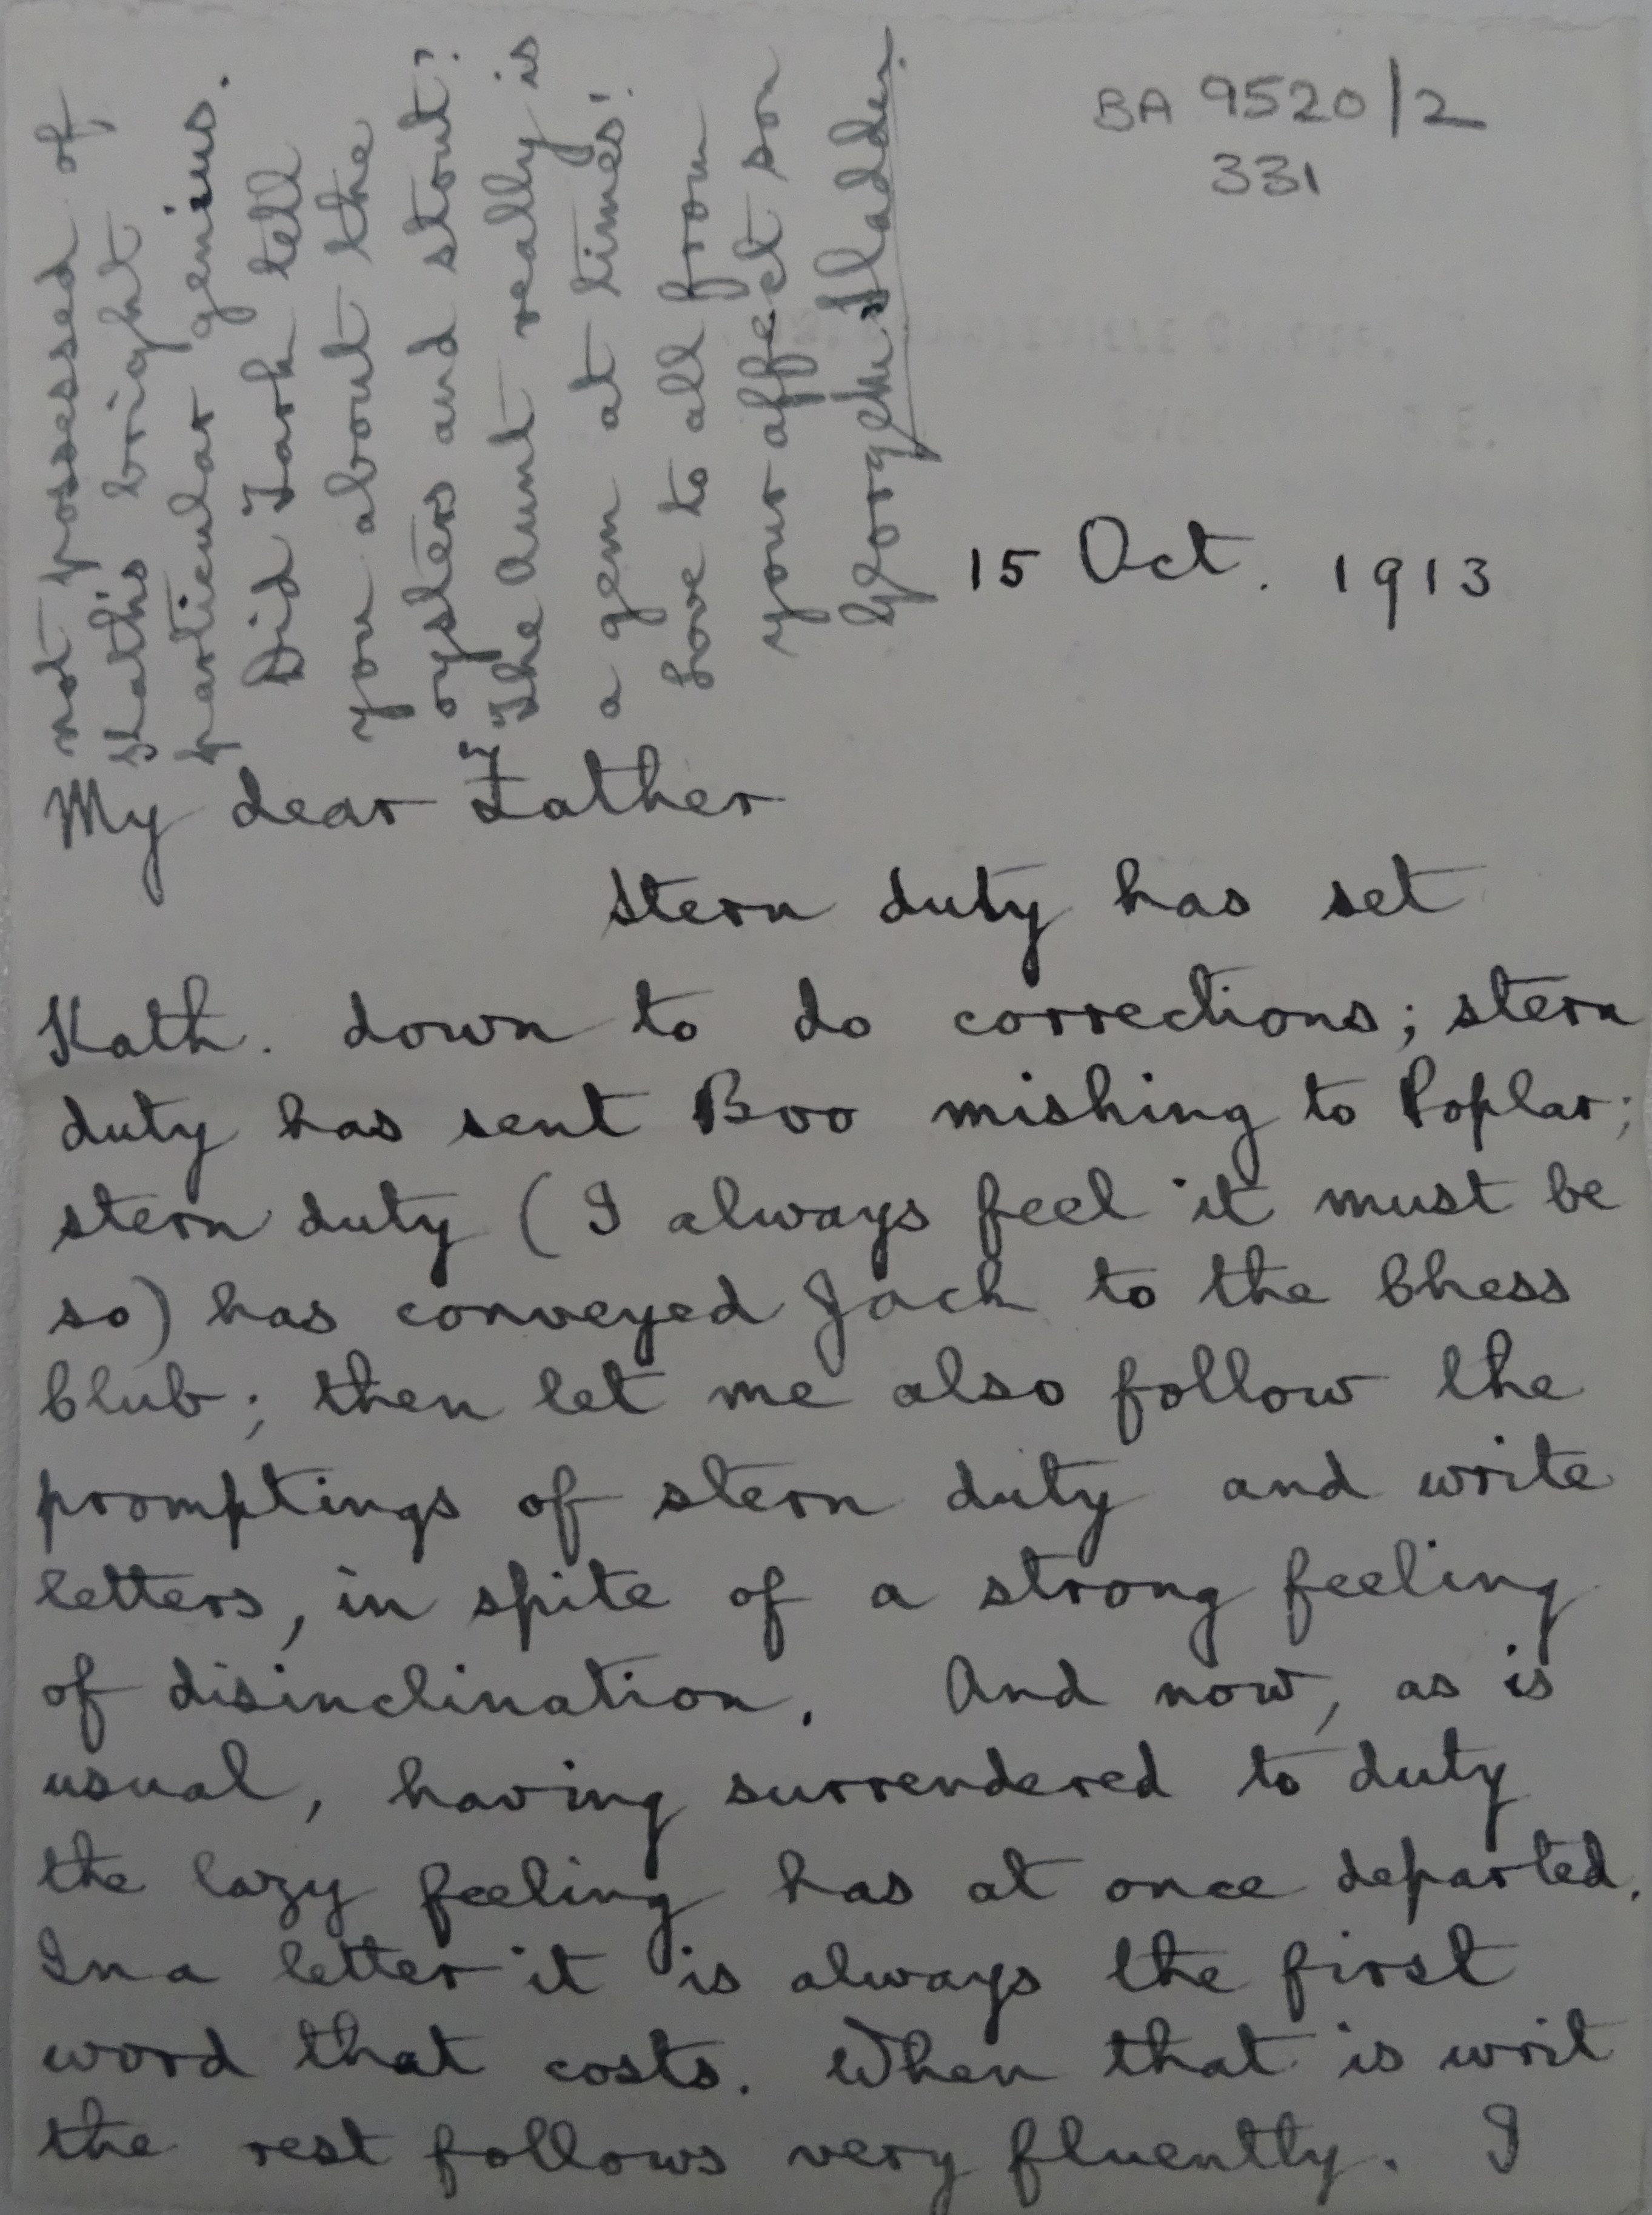 BA 9520/2
331
15 Oct. 1913
My dear Father
Stern duty has set
Kath. down to do corrections; stern
duty has sent Boo mishing to Poplar;
stern duty (I always feel it must be
so) has conveyed Jack to the Chess
Club; then let me also follow the
promptings of stern duty and write
letters, in spite of a strong feeling
of disinclination. And now, as is
usual, having surrendered to duty
the lazy feeling has at once departed.
In a letter it is always the first
word that costs. When that is writ
the rest follows very fluently. I
not possessed of
Kath's bright
particular genius.
Did Kath tell
you about the
oysters and stout?
The Aunt really is
a gem at times!
Love to all from
your affect son
George Sladden.